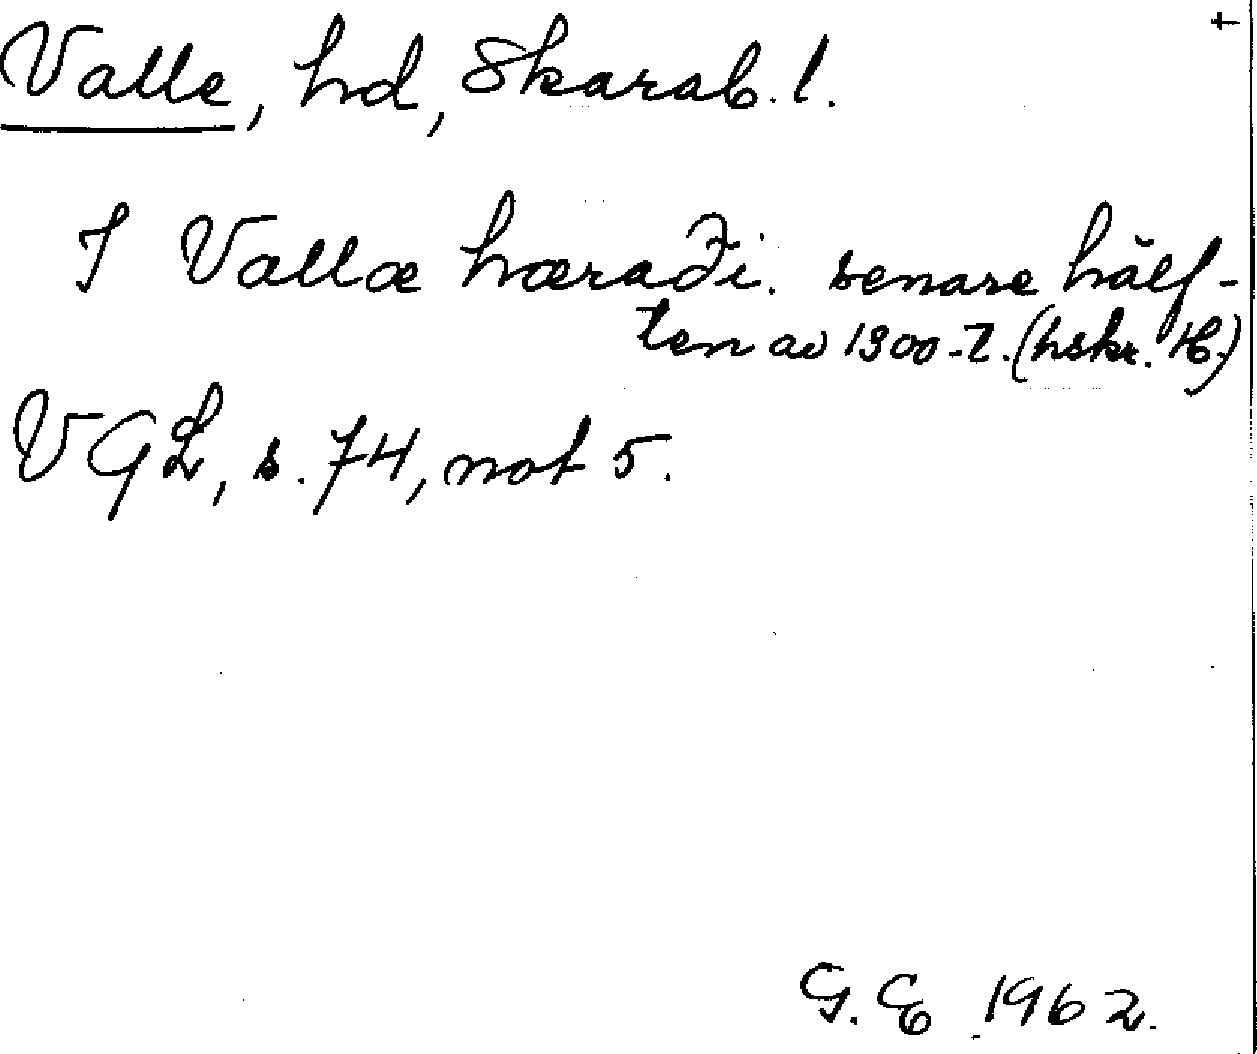 +
Valle, hd, Skarab. l.
I Vallæ hæraði. senare hälf-
ten av 1300-t. (hskr. B.)
VGL, s. 74, not 5.
G. E 1962.